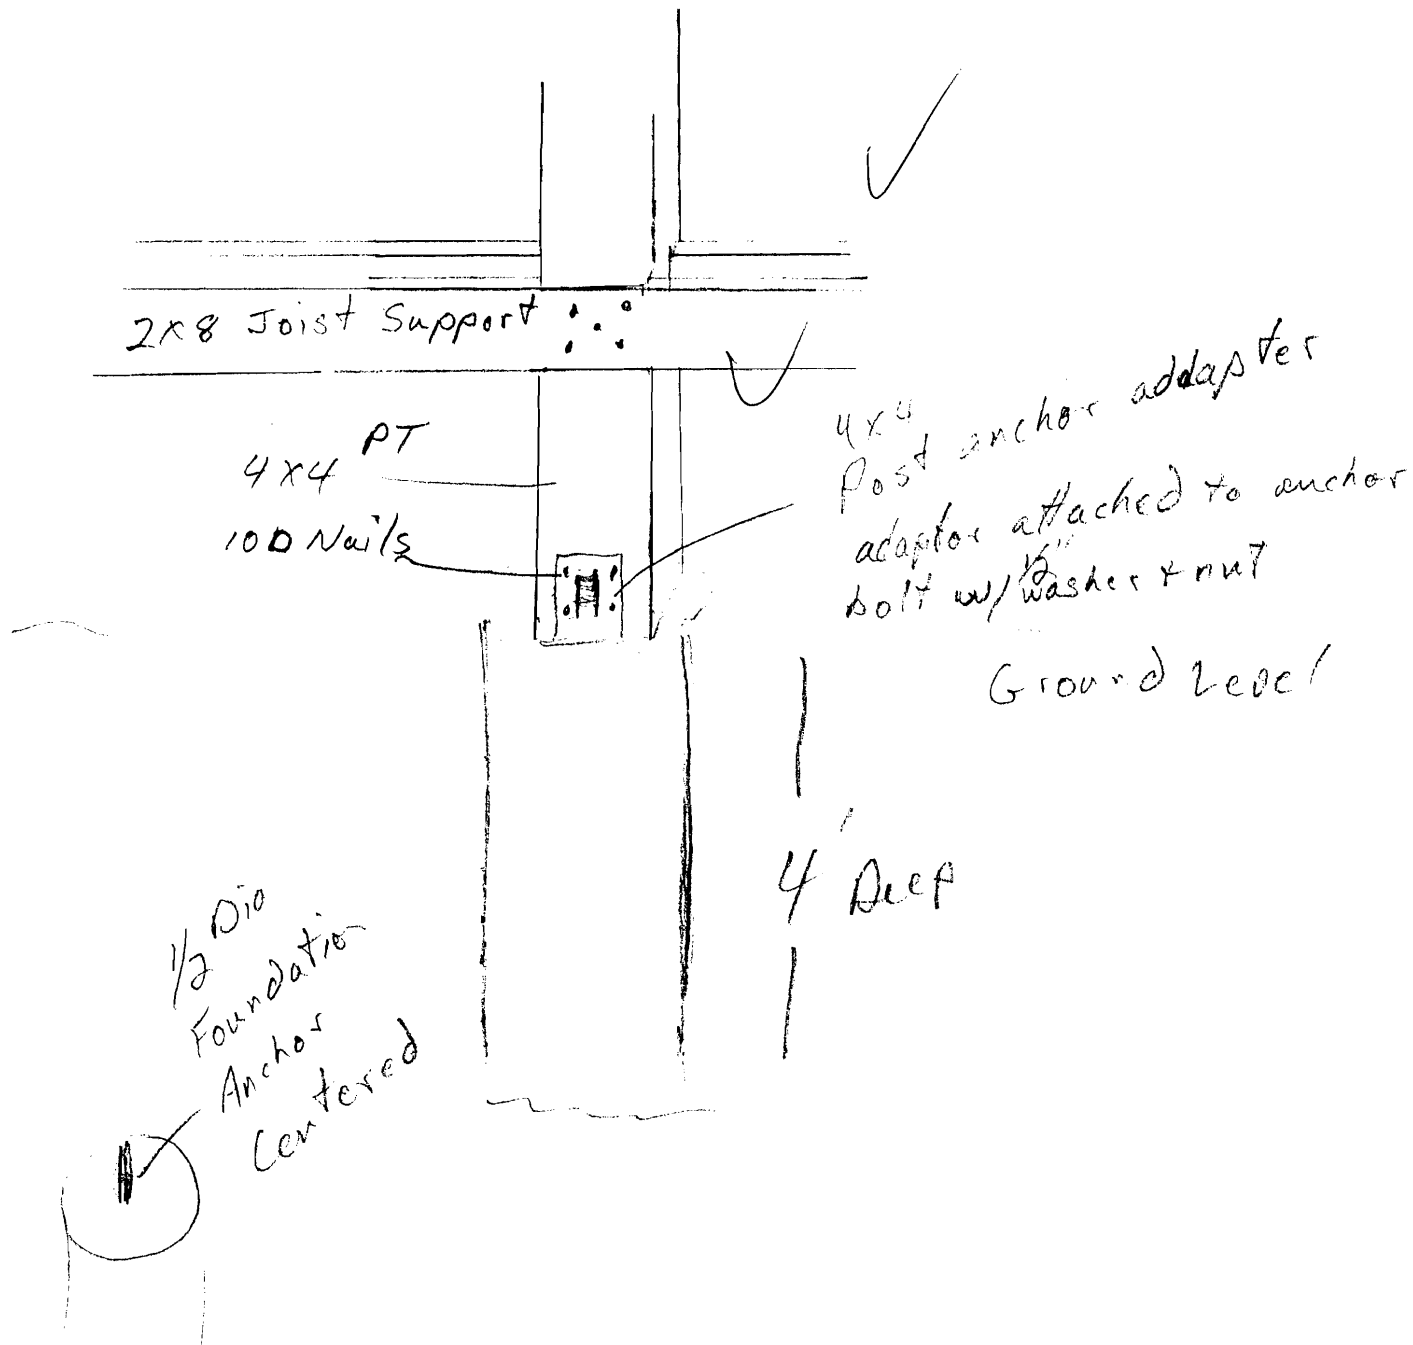 2x8 Joist Support
4x4 PT
10D Nails
4x4
Post anchor addapter
adaptor attached to anchor
bolt w/ 1/2" washer + nut
Ground Level
4' Deep
1/2 Dia
Foundation
Anchor
Centered